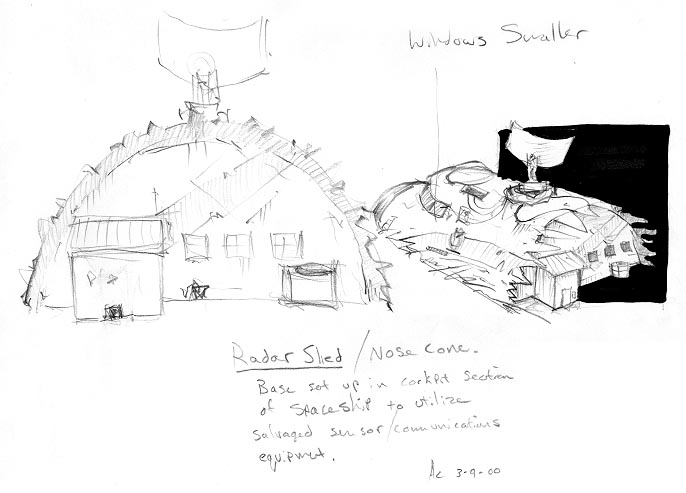 Windows Smaller
Radar Shed / Nose Cone.
Base set up in cockpit section
of spaceship to utilize
salvaged sensor/communications
equipment.
3-9-00